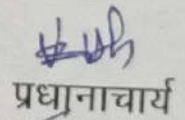 प्रधानाचार्य